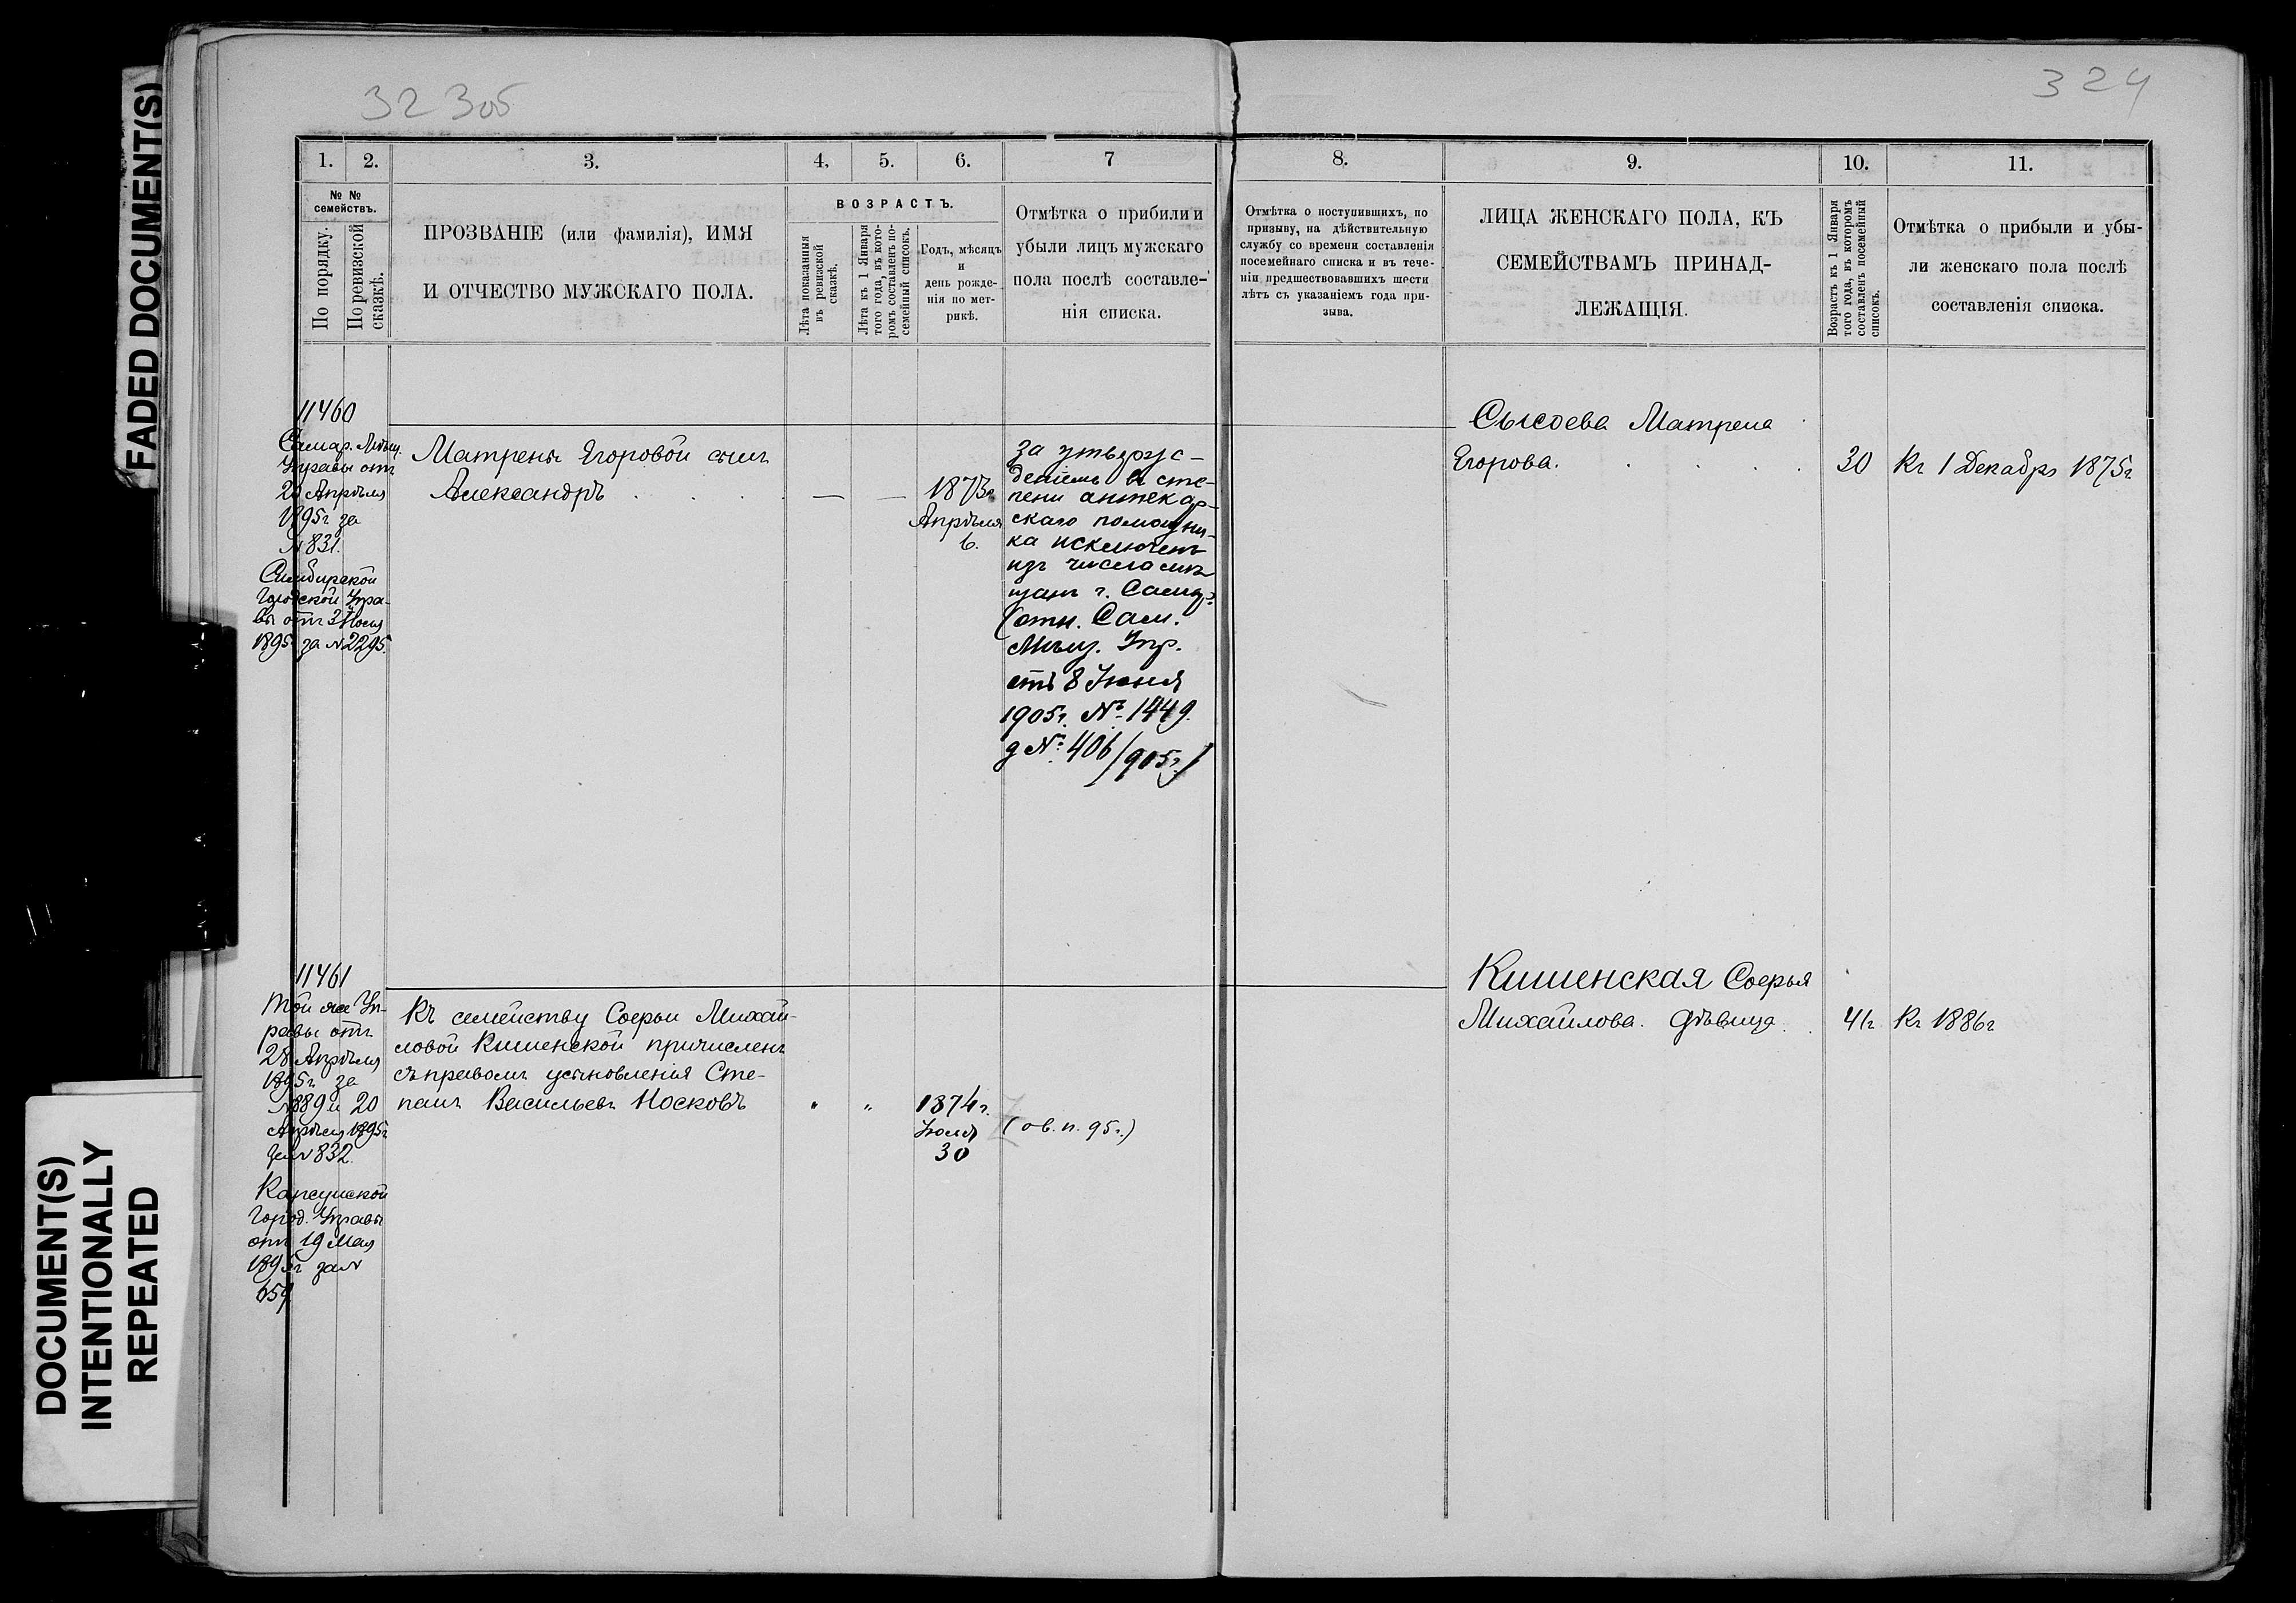 FADED DOCUMENT(S)
DOCUMENT(S)
INTENTIONALLY
REPEATED
323об
324
1. 2. 3. 4. 5. 6. 7
№ №
семействъ.
По порядку.
По ревизской
сказкѣ.
ПРОЗВАНІЕ (или фамилія), ИМЯ
И ОТЧЕСТВО МУЖСКАГО ПОЛА.
ВОЗРАСТЪ.
Лѣта показанныя
въ ревизской
сказкѣ.
Лѣта къ 1 Января
того года, въ кото-
ромъ составленъ по-
семейный списокъ.
Годъ, мѣсяцъ
и
день рожде-
нія по мет-
рикѣ.
Отмѣтка о прибыли и
убыли лицъ мужскаго
пола послѣ составле-
нія списка.
8. 9. 10. 11.
Отмѣтка о поступившихъ, по
призыву, на дѣйствительную
службу со времени составленія
посемейнаго списка и въ тече-
ніи предшествовавшихъ шести
лѣтъ съ указаніемъ года при-
зыва.
ЛИЦА ЖЕНСКАГО ПОЛА, КЪ
СЕМЕЙСТВАМЪ ПРИНАД-
ЛЕЖАЩІЯ.
Возрастъ къ 1 Января
того года, въ которомъ
составленъ посемейный
списокъ.
Отмѣтка о прибыли и убы-
ли женскаго пола послѣ
составленія списка.
11460
Самар. Мѣщ.
Управы отъ
20 Апрѣля
1895г за
№831.
Симбирской
Городской Упра-
вы отъ 3 Іюля
1895 за №2295.
Матрены Егоровой сынъ
Александръ . . . — —
1873г
Апрѣля
6.
За утверж-
деніемъ в сте-
пени аптекар-
скаго помощни-
ка исключенъ
изъ числа мѣ
щанъ г. Самар.
(отн. Сам.
Мѣщ. Упр.
отъ 8 Іюня
1905г. № 1449.
д № 406/905г.)
Сысоева Матрена
Егорова. . . . 30 Къ 1 Декабря 1875г
11461
Той же Уп-
равы отъ
28 Апрѣля
1895г. за
№889 и 20
Апрѣля 1895г
за №832.
Карсунской
Город. Управы
отъ 19 Мая
1895г за №
Къ семейству Софьи Михай-
ловой Кишенской причисленъ
съ правомъ усыновленія Сте-
панъ Васильевъ Носковъ " "
1874г.
Іюля
30
(ов. п. 95г.)
Кишенская Софья
Михайлова. дѣвица . 41 Къ 1886г